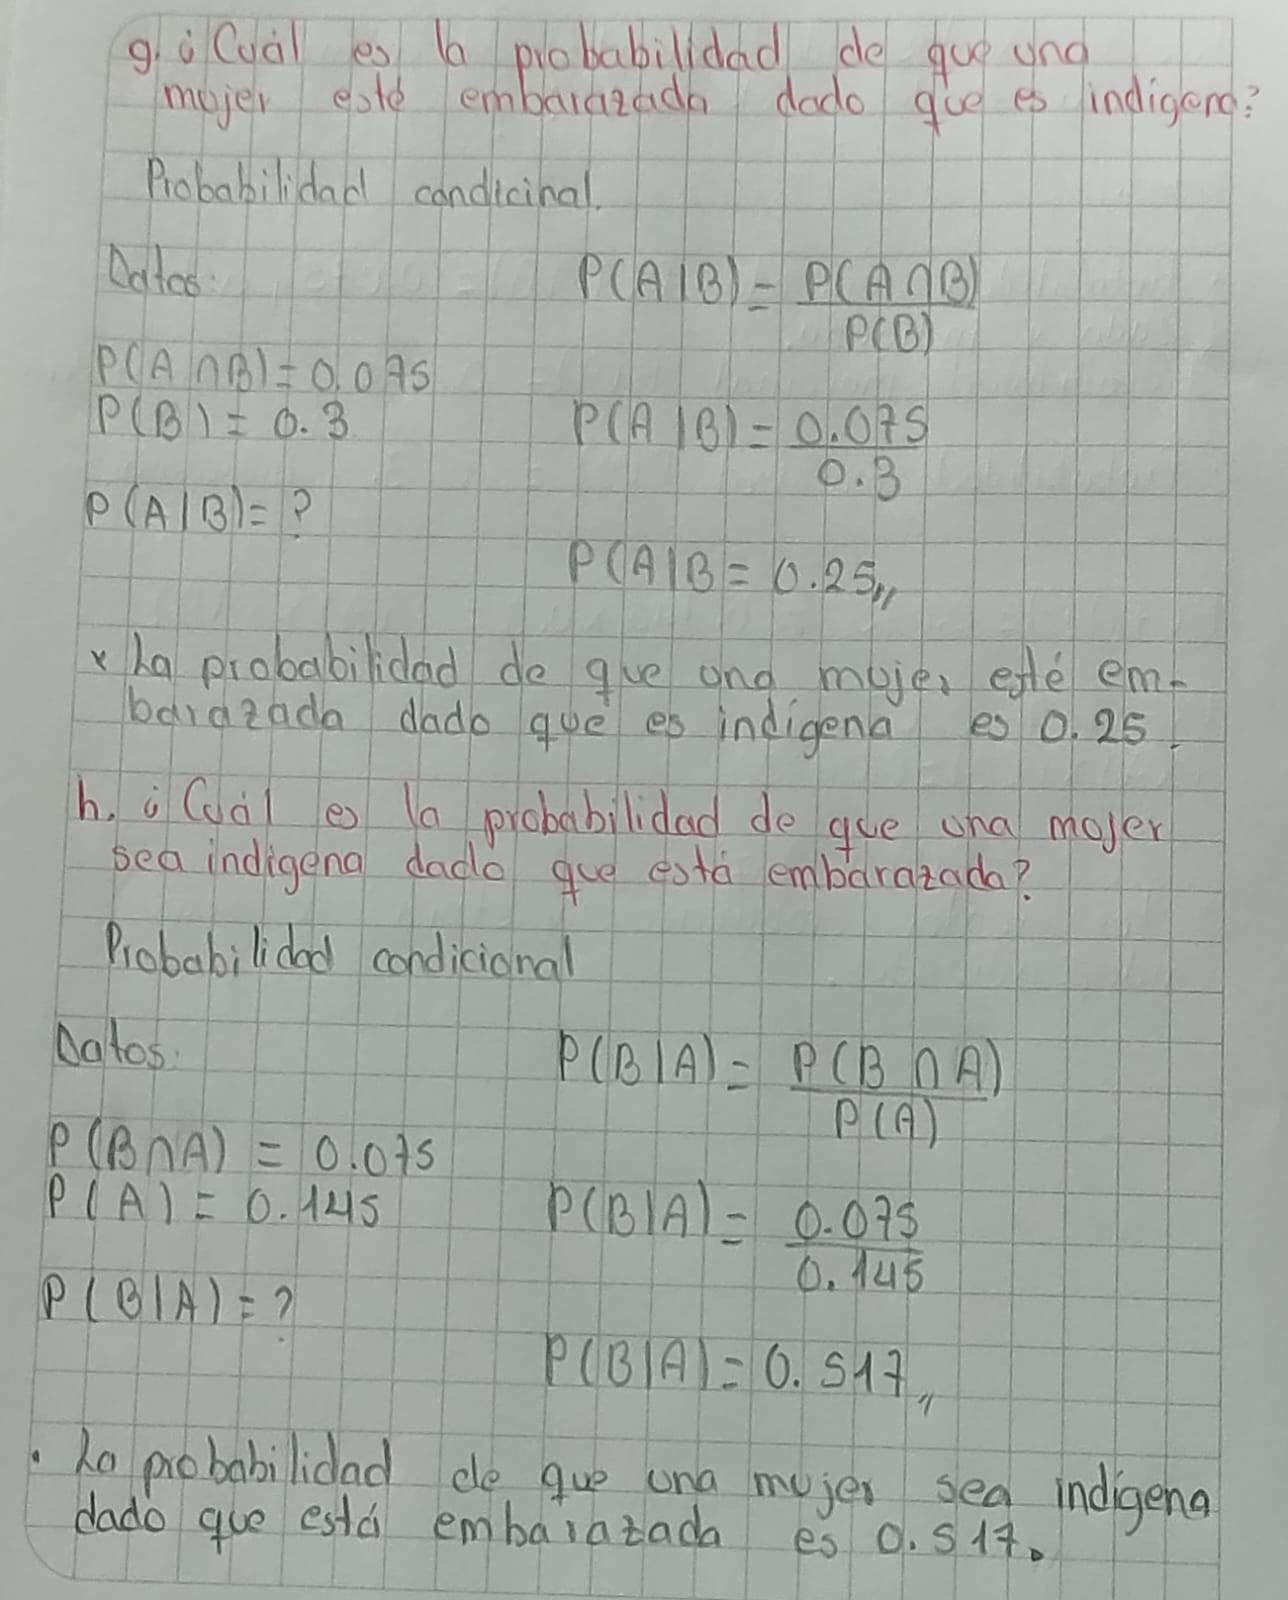 g. ¿Cuál es la probabilidad de que una
mujer esté embarazada dado que es indígena?
Probabilidad condicinal.
Datos:
P(A|B) = P(A ∩ B)
P(B)
P(A ∩ B) = 0.075
P(B) = 0.3
P(A|B) = 0.075
0.3
P(A|B) = ?
P(A|B = 0.25,,
x La probabilidad de que una mujer esté em-
barazada dado que es indígena es 0.25.
h. ¿Cuál es la probabilidad de que una mujer
sea indigena dado que está embarazada?
Probabilidad condicional
Datos:
P(B|A) = P(B ∩ A)
P(A)
P(B∩A) = 0.075
P(A) = 0.145
P(B|A) = 0.075
0.145
P(B|A) = ?
P(B|A) = 0.517,,
• La probabilidad de que una mujer sea indígena
dado que está embarazada es 0.517.